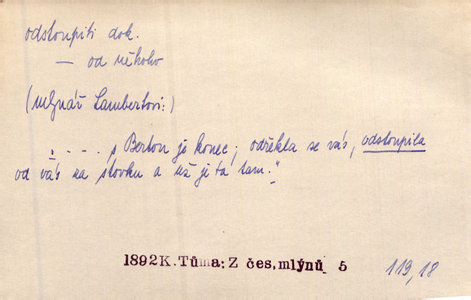 odstoupiti dok.
— od někoho
(mlynář Lambertovi:)
„ . . . . s Berton je konec; odřekla se vás, odstoupila
od vás na stovku a už je ta tam.“
1892 K. Tůma: Z čes. mlýnů 5 119, 18